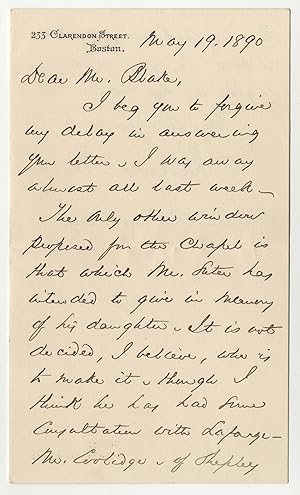 233 Clarendon Street.
Boston.
May 19. 1890
Dear Mr. Blake,
I beg you to forgive
my delay in answering
your letter. I was away
almost all last week -
The only other window
proposed for the Chapel is
that which Mr. has
intended to give in memory
of his daughter. It is not
decided, I believe, who is
to make it - though I
think he has had some
Consultation with Lafarge -
Mr. Coolidge - of Shepley